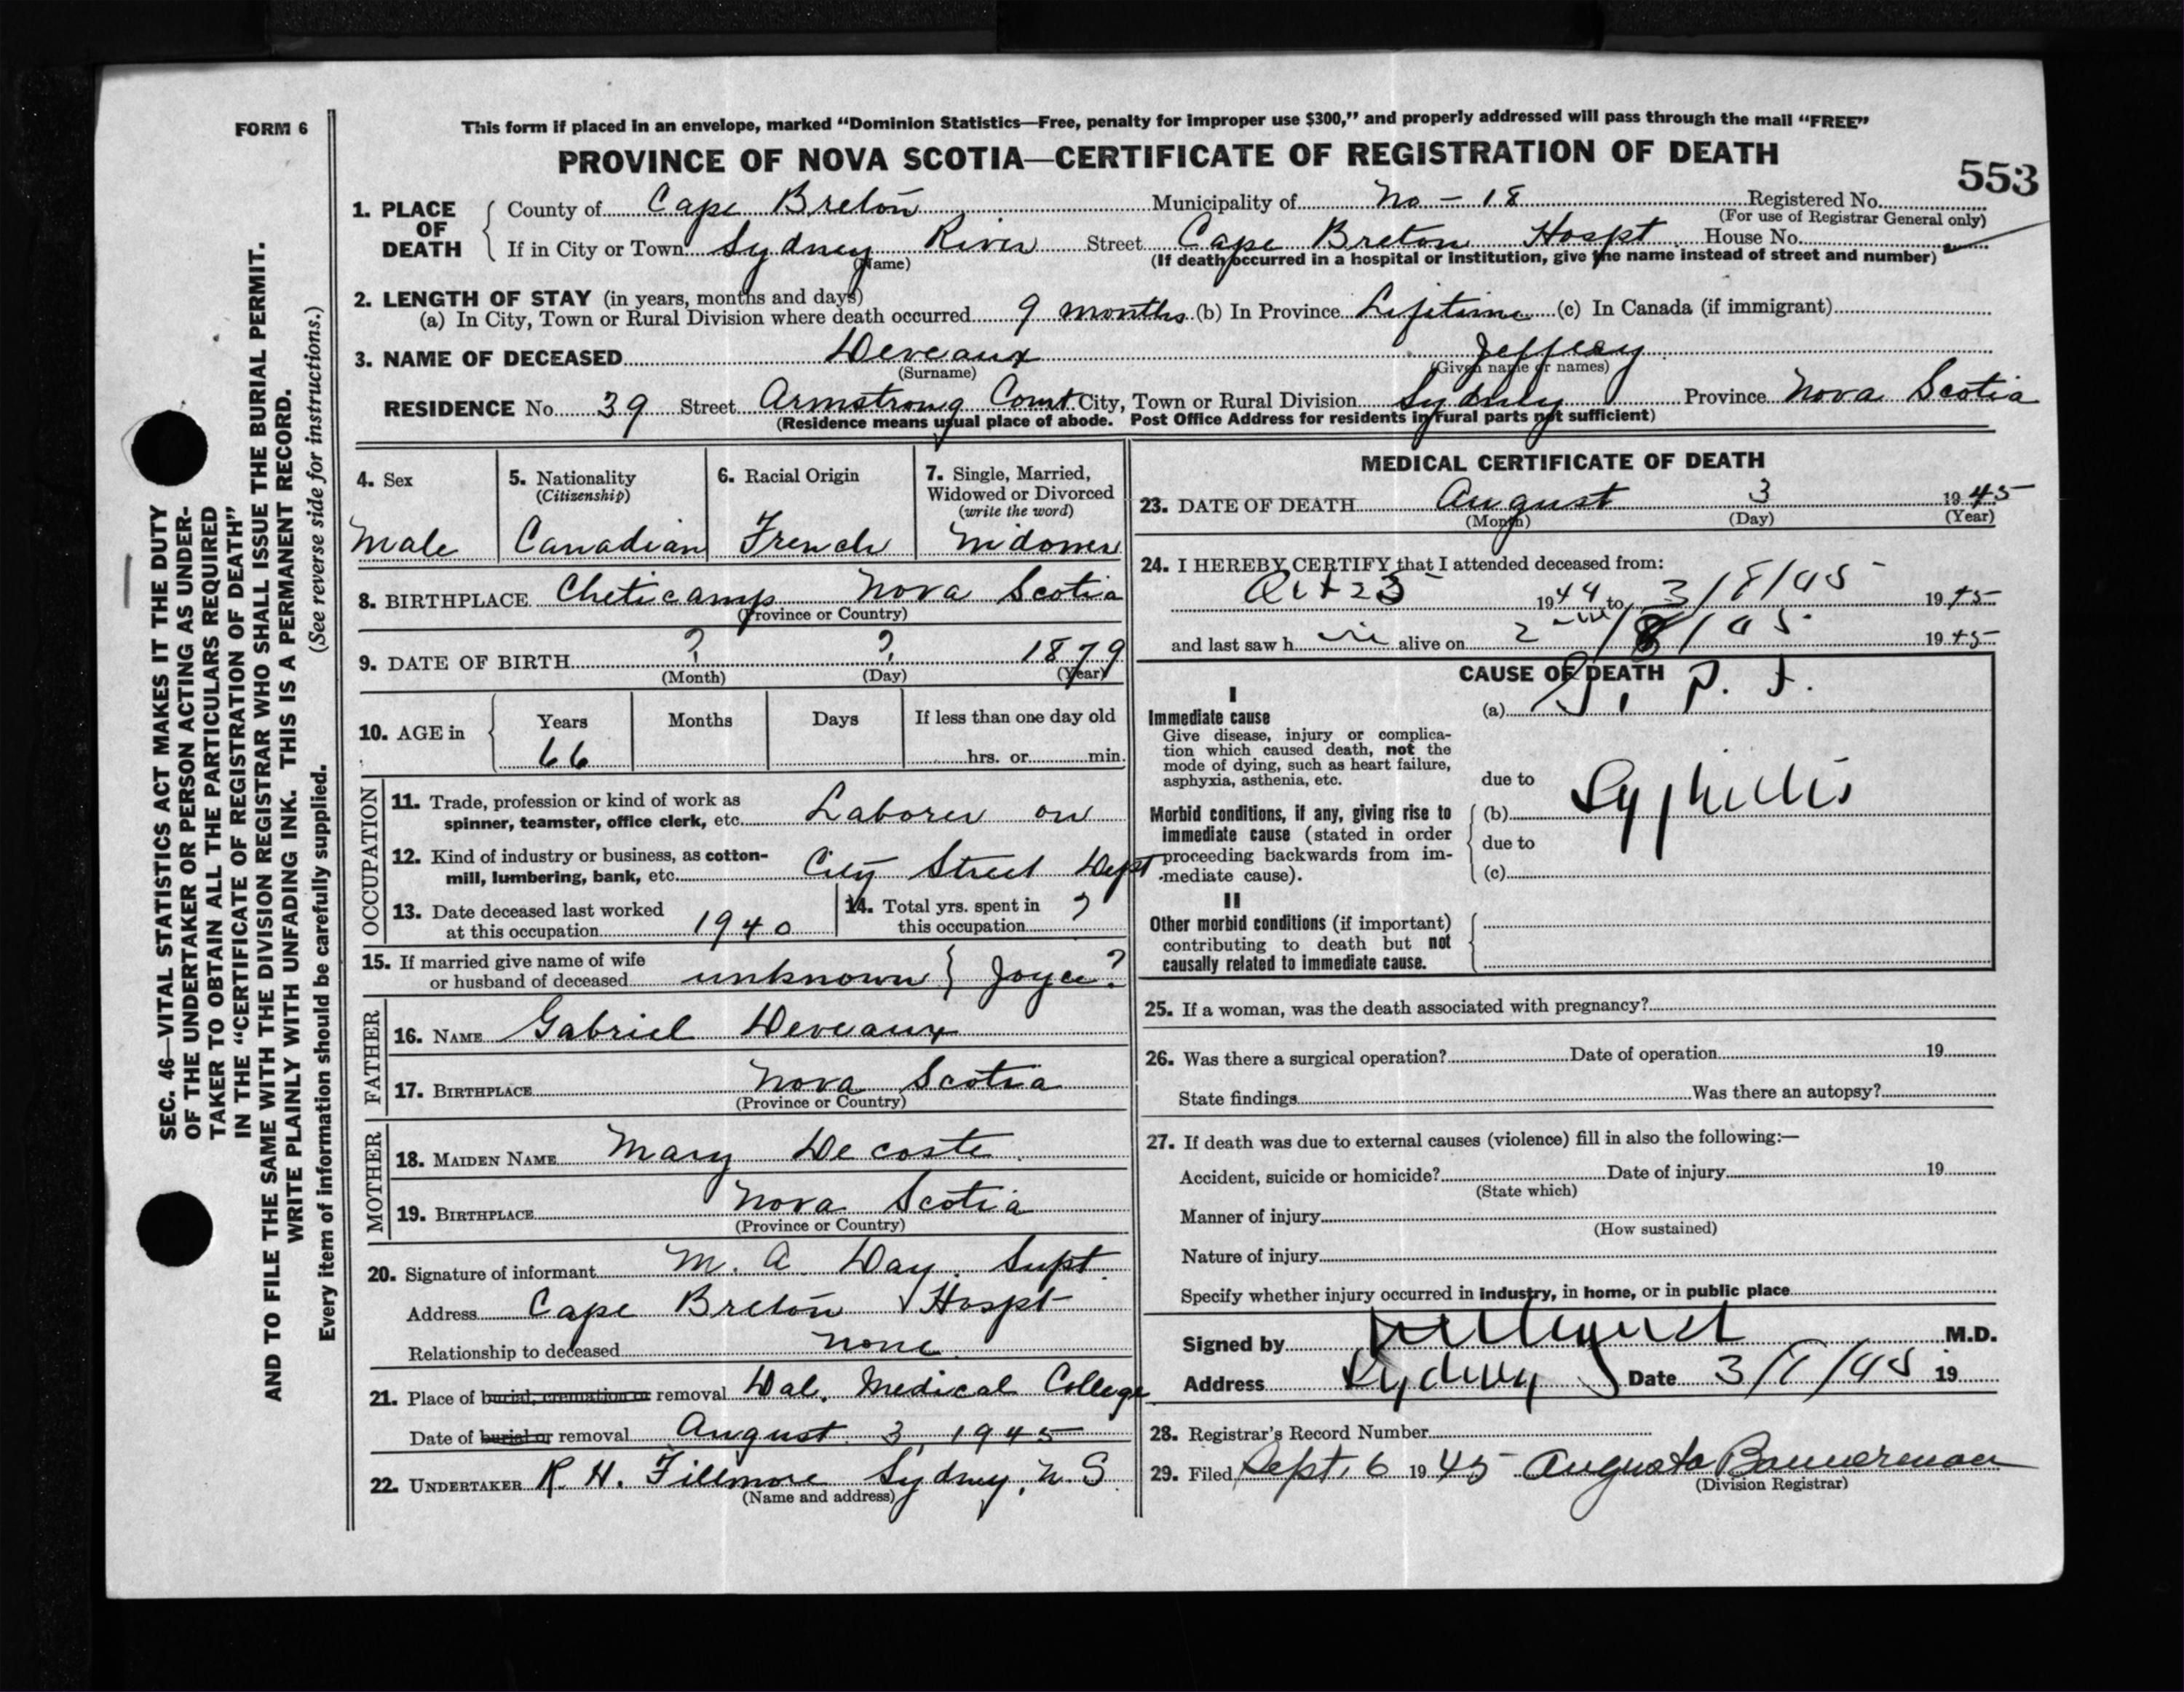 FORM 6
This form if placed in an envelope, marked “Dominion Statistics—Free, penalty for improper use $300,” and properly addressed will pass through the mail “FREE”
PROVINCE OF NOVA SCOTIA—CERTIFICATE OF REGISTRATION OF DEATH
553
1. PLACE OF DEATH
County of Cape Breton Municipality of No - 18 Registered No.
(For use of Registrar General only)
If in City or Town Sydney River Street Cape Breton Hospt House No.
(Name) (If death occurred in a hospital or institution, give the name instead of street and number)
2. LENGTH OF STAY (in years, months and days)
(a) In City, Town or Rural Division where death occurred 9 months (b) In Province Lifetime (c) In Canada (if immigrant)
3. NAME OF DECEASED Deveaux Jeffery
(Surname) (Given name or names)
RESIDENCE No. 39 Street Armstrong Court City, Town or Rural Division Sydney Province Nova Scotia
(Residence means usual place of abode. Post Office Address for residents in rural parts not sufficient)
4. Sex
Male
5. Nationality
(Citizenship)
Canadian
6. Racial Origin
French
7. Single, Married,
Widowed or Divorced
(write the word)
Widower
8. BIRTHPLACE Cheticamp Nova Scotia
(Province or Country)
9. DATE OF BIRTH ? ? 1879
(Month) (Day) (Year)
10. AGE in
Years Months Days If less than one day old
66 hrs. or min.
OCCUPATION
11. Trade, profession or kind of work as
spinner, teamster, office clerk, etc. Laborer on
12. Kind of industry or business, as cotton-
mill, lumbering, bank, etc. City Street Dept
13. Date deceased last worked
at this occupation 1940
14. Total yrs. spent in
this occupation ?
15. If married give name of wife
or husband of deceased unknown } Joyce?
FATHER
16. NAME Gabriel Deveaux
17. BIRTHPLACE Nova Scotia
(Province or Country)
MOTHER
18. MAIDEN NAME Mary De coste
19. BIRTHPLACE Nova Scotia
(Province or Country)
20. Signature of informant M. A. Day. Supt.
Address Cape Breton Hospt
Relationship to deceased none
21. Place of burial, cremation or removal Dal. Medical College
Date of burial or removal August 3, 1945
22. UNDERTAKER R. H. Fillmore Sydney, N. S.
(Name and address)
MEDICAL CERTIFICATE OF DEATH
23. DATE OF DEATH August 3 1945
(Month) (Day) (Year)
24. I HEREBY CERTIFY that I attended deceased from:
Oct 23 1944 to 3/8/45 1945
and last saw h im alive on 2 /8/45 1945
CAUSE OF DEATH
I
Immediate cause
Give disease, injury or complica-
tion which caused death, not the
mode of dying, such as heart failure,
asphyxia, asthenia, etc.
(a) G. P. I.
due to
Morbid conditions, if any, giving rise to
immediate cause (stated in order
proceeding backwards from im-
mediate cause).
(b) Syphillis
due to
(c)
II
Other morbid conditions (if important)
contributing to death but not
causally related to immediate cause.
25. If a woman, was the death associated with pregnancy?
26. Was there a surgical operation? Date of operation 19
State findings Was there an autopsy?
27. If death was due to external causes (violence) fill in also the following:—
Accident, suicide or homicide? Date of injury 19
(State which)
Manner of injury
(How sustained)
Nature of injury
Specify whether injury occurred in industry, in home, or in public place
Signed by M.D.
Address Sydney Date 3/8/45 19
28. Registrar's Record Number
29. Filed Sept. 6 1945 Augusta Bannerman
(Division Registrar)
SEC. 46—VITAL STATISTICS ACT MAKES IT THE DUTY
OF THE UNDERTAKER OR PERSON ACTING AS UNDER-
TAKER TO OBTAIN ALL THE PARTICULARS REQUIRED
IN THE “CERTIFICATE OF REGISTRATION OF DEATH”
AND TO FILE THE SAME WITH THE DIVISION REGISTRAR WHO SHALL ISSUE THE BURIAL PERMIT.
WRITE PLAINLY WITH UNFADING INK. THIS IS A PERMANENT RECORD.
Every item of information should be carefully supplied. (See reverse side for instructions.)